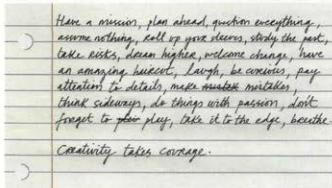 Have a mission, plan ahead, question everything,
assume nothing, roll up your sleeves, study the past,
take risks, dream higher, welcome change, have
an amazing haircut, laugh, be curious, pay
attention to details, make mistakes,
think sideways, do things with passion, don't
forget to play, take it to the edge, breathe.
Creativity takes courage.